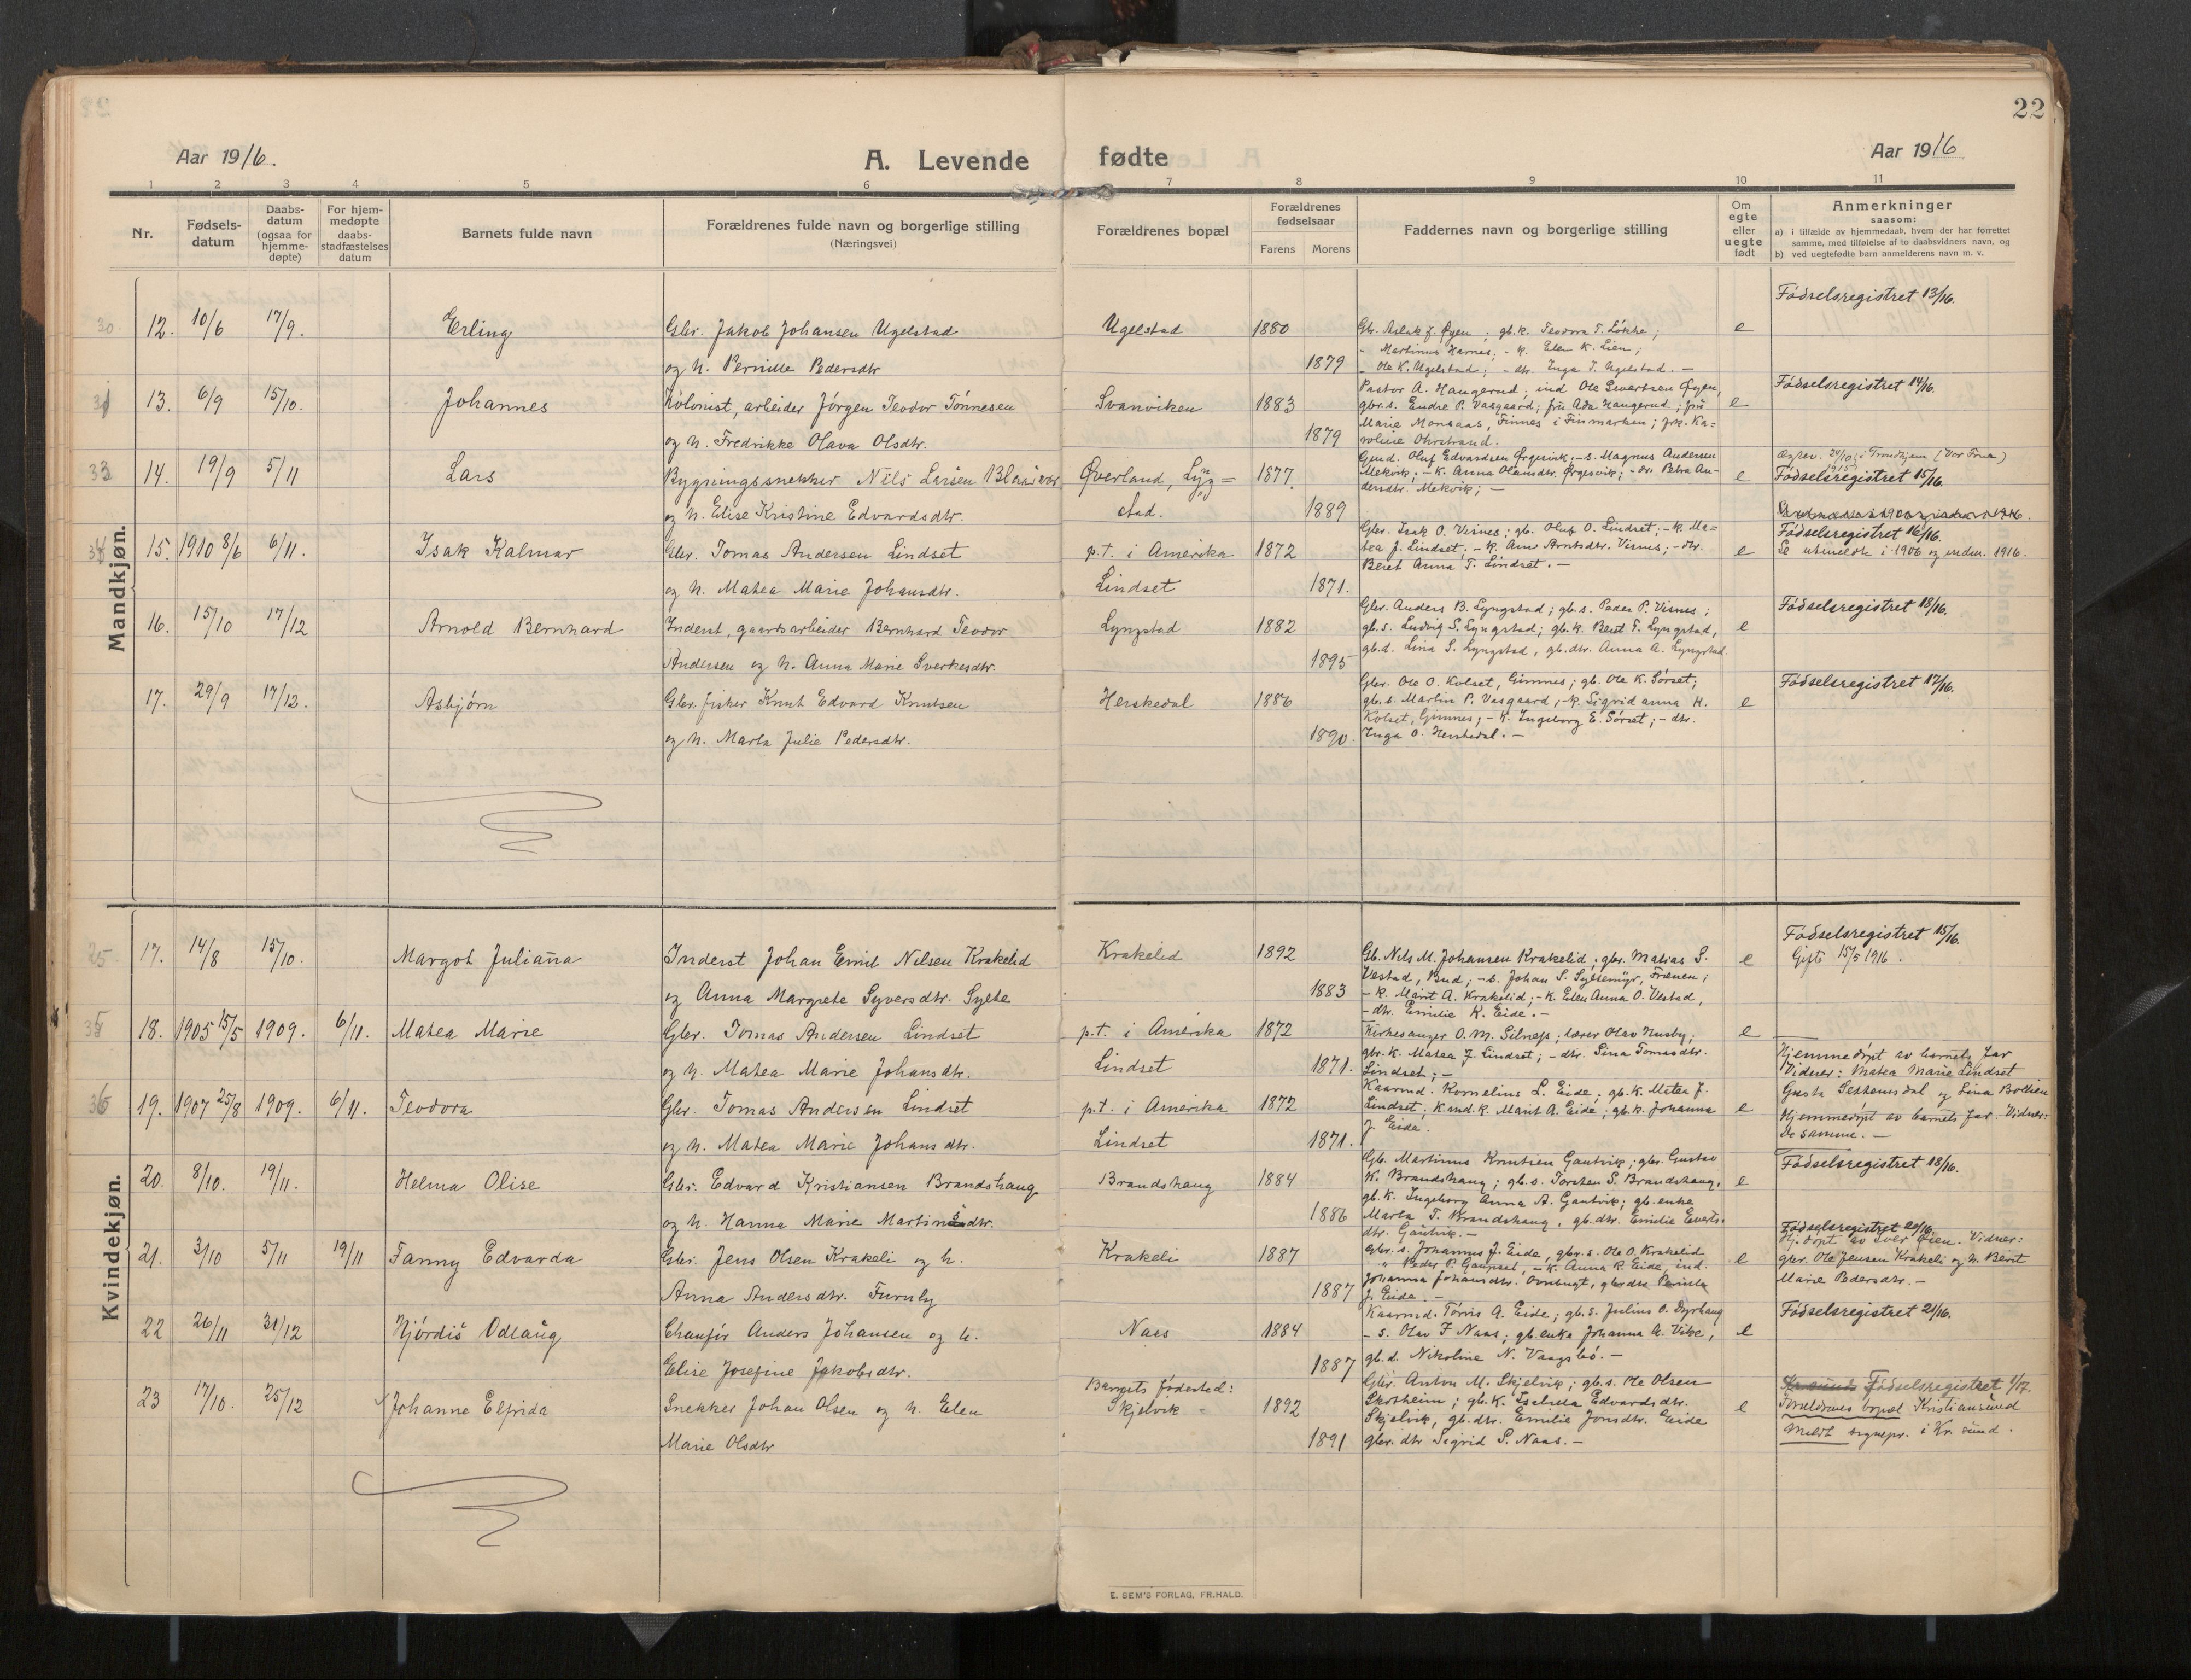 22
Aar 1916.
A. Levende fødte
Aar 1916
1 2 3 4 5 6 7 8 9 10 11
Nr.
Fødsels-
datum
Daabs-
datum
(ogsaa for
hjemme-
døpte)
For hjem-
medøpte
daabs-
stadfæstelses
datum
Barnets fulde navn
Forældrenes fulde navn og borgerlige stilling
(Næringsvei)
Forældrenes bopæl
Forældrenes
fødselsaar
Farens Morens
Faddernes navn og borgerlige stilling
Om
egte
eller
uegte
født
Anmerkninger
saasom:
a) i tilfælde av hjemmedaab, hvem der har forrettet
samme, med tilføielse af to daabsvidners navn, og
b) ved uegtefødte barn anmelderens navn m. v.
Mandkjøn.
30 12. 10/6 17/9. Erling
Gbr. Jakob Johansen Ugelstad
og h. Pernille Pedersdtr
Ugelstad 1880
1879
Gbr. Aslak J. Øyen; gb.k. Teodora T. Løkke;
- Martinus Harnes; - k. Elen K. Lien;
- Ole K. Ugelstad; - dtr. Inga J. Ugelstad. -
e
Fødselsregistret 13/16.
31 13. 6/9 15/10. Johannes
Kolonist, arbeider Jørgen Teodor Tønnesen
og h. Fredrikke Olava Olsdtr.
Svanviken 1883
1879
Pastor A. Haugerud; ind Ole Sivertsen Øyen,
gbr.s. Endre P. Vasgaard; fru Ada Haugerud; fru
Marie Monsaas, Finnes i Finmarken; frk. Ka-
roline Ohrstrand.
e
Fødselsregistret 14/16.
33 14. 19/9 5/11 Lars
Bygningssnekker Nils Larsen Blaasvær
og h. Elise Kristine Edvardsdtr.
Øverland, Lyng=
stad.
1877.
1889
Gmd. Oluf Edvardsen Ørgesvik; - s. Magnus Andersen
Mekvik; - k. Anna Olausdtr. Ørgesvik; - dr. Petra An-
dersdtr. Mekvik; -
e
i Trondhjem (Vor Frue)
Fødselsregistret 15/16.
34 15. 1910 8/6 6/11. Isak Kalmar
Gbr. Tomas Andersen Lindset
og h. Matea Marie Johansdtr.
p.t. i Amerika
Lindset
1872
1871.
Gbr. Isak O. Visnes; gb. Oluf O. Lindset; - k. Ma=
tea J. Lindset; - k. Ane Arntsdtr. Visnes; - dtr.
Beret Anna T. Lindset. -
e
Fødselsregistret 16/16.
Se utmeldte i 1906 og indm. 1916.
16. 15/10 17/12 Arnold Bernhard
Inderst, gaardsarbeider Bernhard Teodor
Andersen og h. Anna Marie Sverkesdtr.
Lyngstad 1882
1895
Gbr. Anders B. Lyngstad; gb.s. Peder P. Visnes;
gb.s. Ludvig S. Lyngstad; gb.k. Beret T. Lyngstad,
gb.d. Lina S. Lyngstad, gb.dtr. Anna A. Lyngstad.
e
Fødselsregistret 18/16.
17. 29/9 17/12. Asbjørn
Gbr. fisker Knut Edvard Knutsen
og h. Marta Julie Pedersdtr.
Herskedal 1886
1890.
Gbr. Ole O. Kolset, Gimnes; gb. Ole K. Sørset;
gb.s. Martin P. Vasgaard; - k. Sigrid anna H.
Kolset, Gimnes; - k. Ingeborg E. Sørset; - dtr.
Inga O. Herskedal. -
e
Fødselsregistret 17/16.
Kvindekjøn.
25 17. 14/8 15/10. Margot Juliana
Inderst Johan Emil Nilsen Krakelid
og Anna Margrete Syversdtr. Sylte
Krakelid 1892
1883
Gb. Nils M. Johansen Krakelid; gbr. Matias S.
Vestad, Bud; - s. Johan S. Syltemyr, Frænen;
- k. Marit A. Krakelid; - k. Elen Anna O. Vestad,
- dtr. Emilie K. Eide. -
e
Fødselsregistret 15/16.
Gifte 15/5 1916.
35 18. 1905 15/5 1909. 6/11. Matea Marie
Gbr. Tomas Andersen Lindset
og h. Matea Marie Johansdtr.
p.t. i Amerika
Lindset
1872
1871.
Kirkesanger O. M. Silnes; lærer Olav Husby;
gbr.k. Matea J. Lindset; - dtr. Sina Tomasdtr.
Lindset; -
e
Hjemmedøpt av barnets far
Vidner: Matea Marie Lindset
36 19. 1907 25/8 1909. 6/11. Teodora
Gbr. Tomas Andersen Lindset
og h. Matea Marie Johansdtr.
p.t. i Amerika
Lindset
1872
1871.
Kaarmd. Kornelius L. Eide; gb.k. Matea J.
Lindset; kmd.k. Marit A. Eide; gb.k. Johanna
J. Eide.
e
og Lina
Hjemmedøpt av barnets far. Vidner:
De samme. -
20. 8/10. 19/11. Helma Olise
Gbr. Edvard Kristiansen Brandshaug
og h. Hanna Marie Martinsdtr.
Brandshaug 1884
1886
Gb. Martinus Knutsen Gautvik; gbr. Gustav
K. Brandshaug; gb.s. Torsten S. Brandshaug,
gb.k. Ingeborg Anna A. Gautvik; gb.enke
Marta T. Brandshaug, gb.dtr. Emilie Everts-
dtr. Gautvik. -
e
Fødselsregistret 18/16.
21. 3/10 5/11 19/11 Fanny Edvarda
Gbr. Jens Olsen Krakeli og h.
Anna Andersdtr. Furuly
Krakeli 1887
1887
gbr.s. Johannes J. Eide, gbr.s. Ole O. Krakelid
" Peder P. Gaupset, - k. Anna R. Eide, ind.
Johanna Johansdtr. Ornbugt, gbrdtr Pernila
J. Eide. -
e
Fødselsregistret 20/16.
Hj. døpt av Iver Øien. Vidner:
gbr. Ole Jensen Krakeli og h. Berit
Marie Pedersdtr. -
22 26/11 31/12 Hjørdis Odlaug
Chaufør Anders Johansen og h.
Elise Josefine Jakobsdtr.
Naas 1884
1887
Kaarmd. Tøris A. Eide; gb.s. Julius O. Dyrhaug
- s. Olav F Naas; gb.enke Johanna A. Vike,
gb.d. Nikoline N. Vaagsbø. -
e
Fødselsregistret 21/16.
23 17/10. 25/12 Johanna Elfrida
Snekker Johan Olsen og h. Elen
Marie Olsdtr
Barnets fødested:
Skjelvik
1892
1891
Gbr. Anton M. Skjelvik; gb.s. Ole Olsen
Skotheim; gb.k. Iselida Edvardsdtr.
Skjelvik, gb.dtr. Emilie Jonsdtr. Eide
gbr. dtr Sigrid P. Naas. -
e
Fødselsregistret 1/17.
Forældrenes bopæl Kristiansund
Meldt sognepr. i Kr. sund.
E. SEM'S FORLAG, FR.HALD.